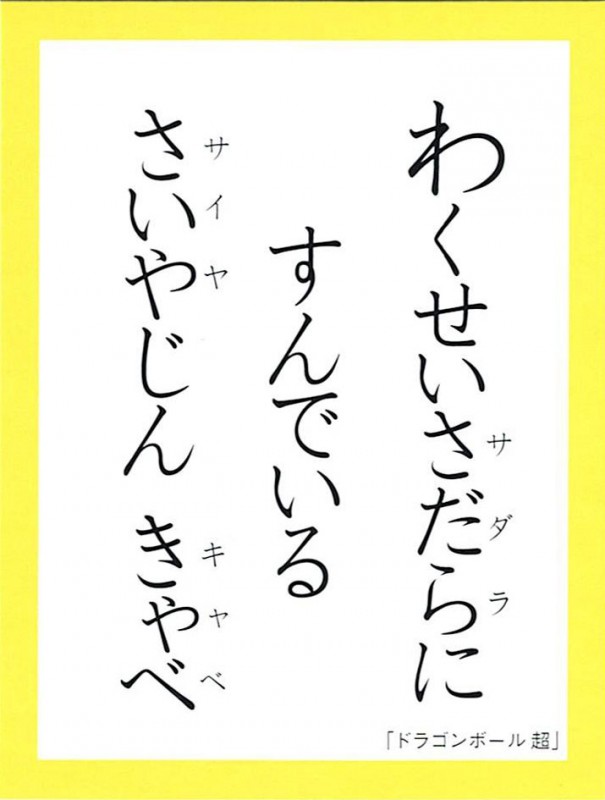 わくせいさだらに
サダラ
すんでいる
さいやじん きゃべ
サイヤ キャベ
「ドラゴンボール 超」